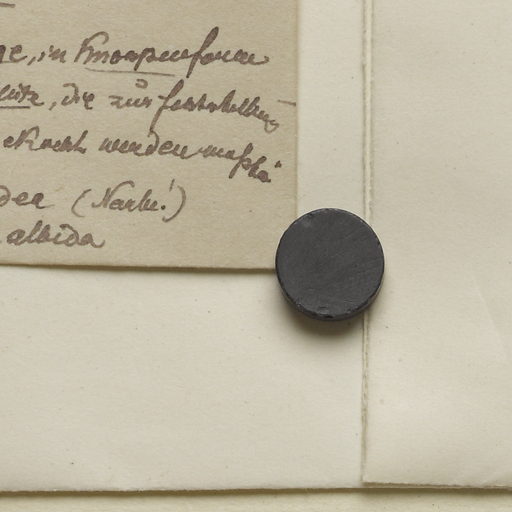 ge, in Knospenform
eute, die zur feststellung
ekocht werden mußte
dea (Narbe!)
albida